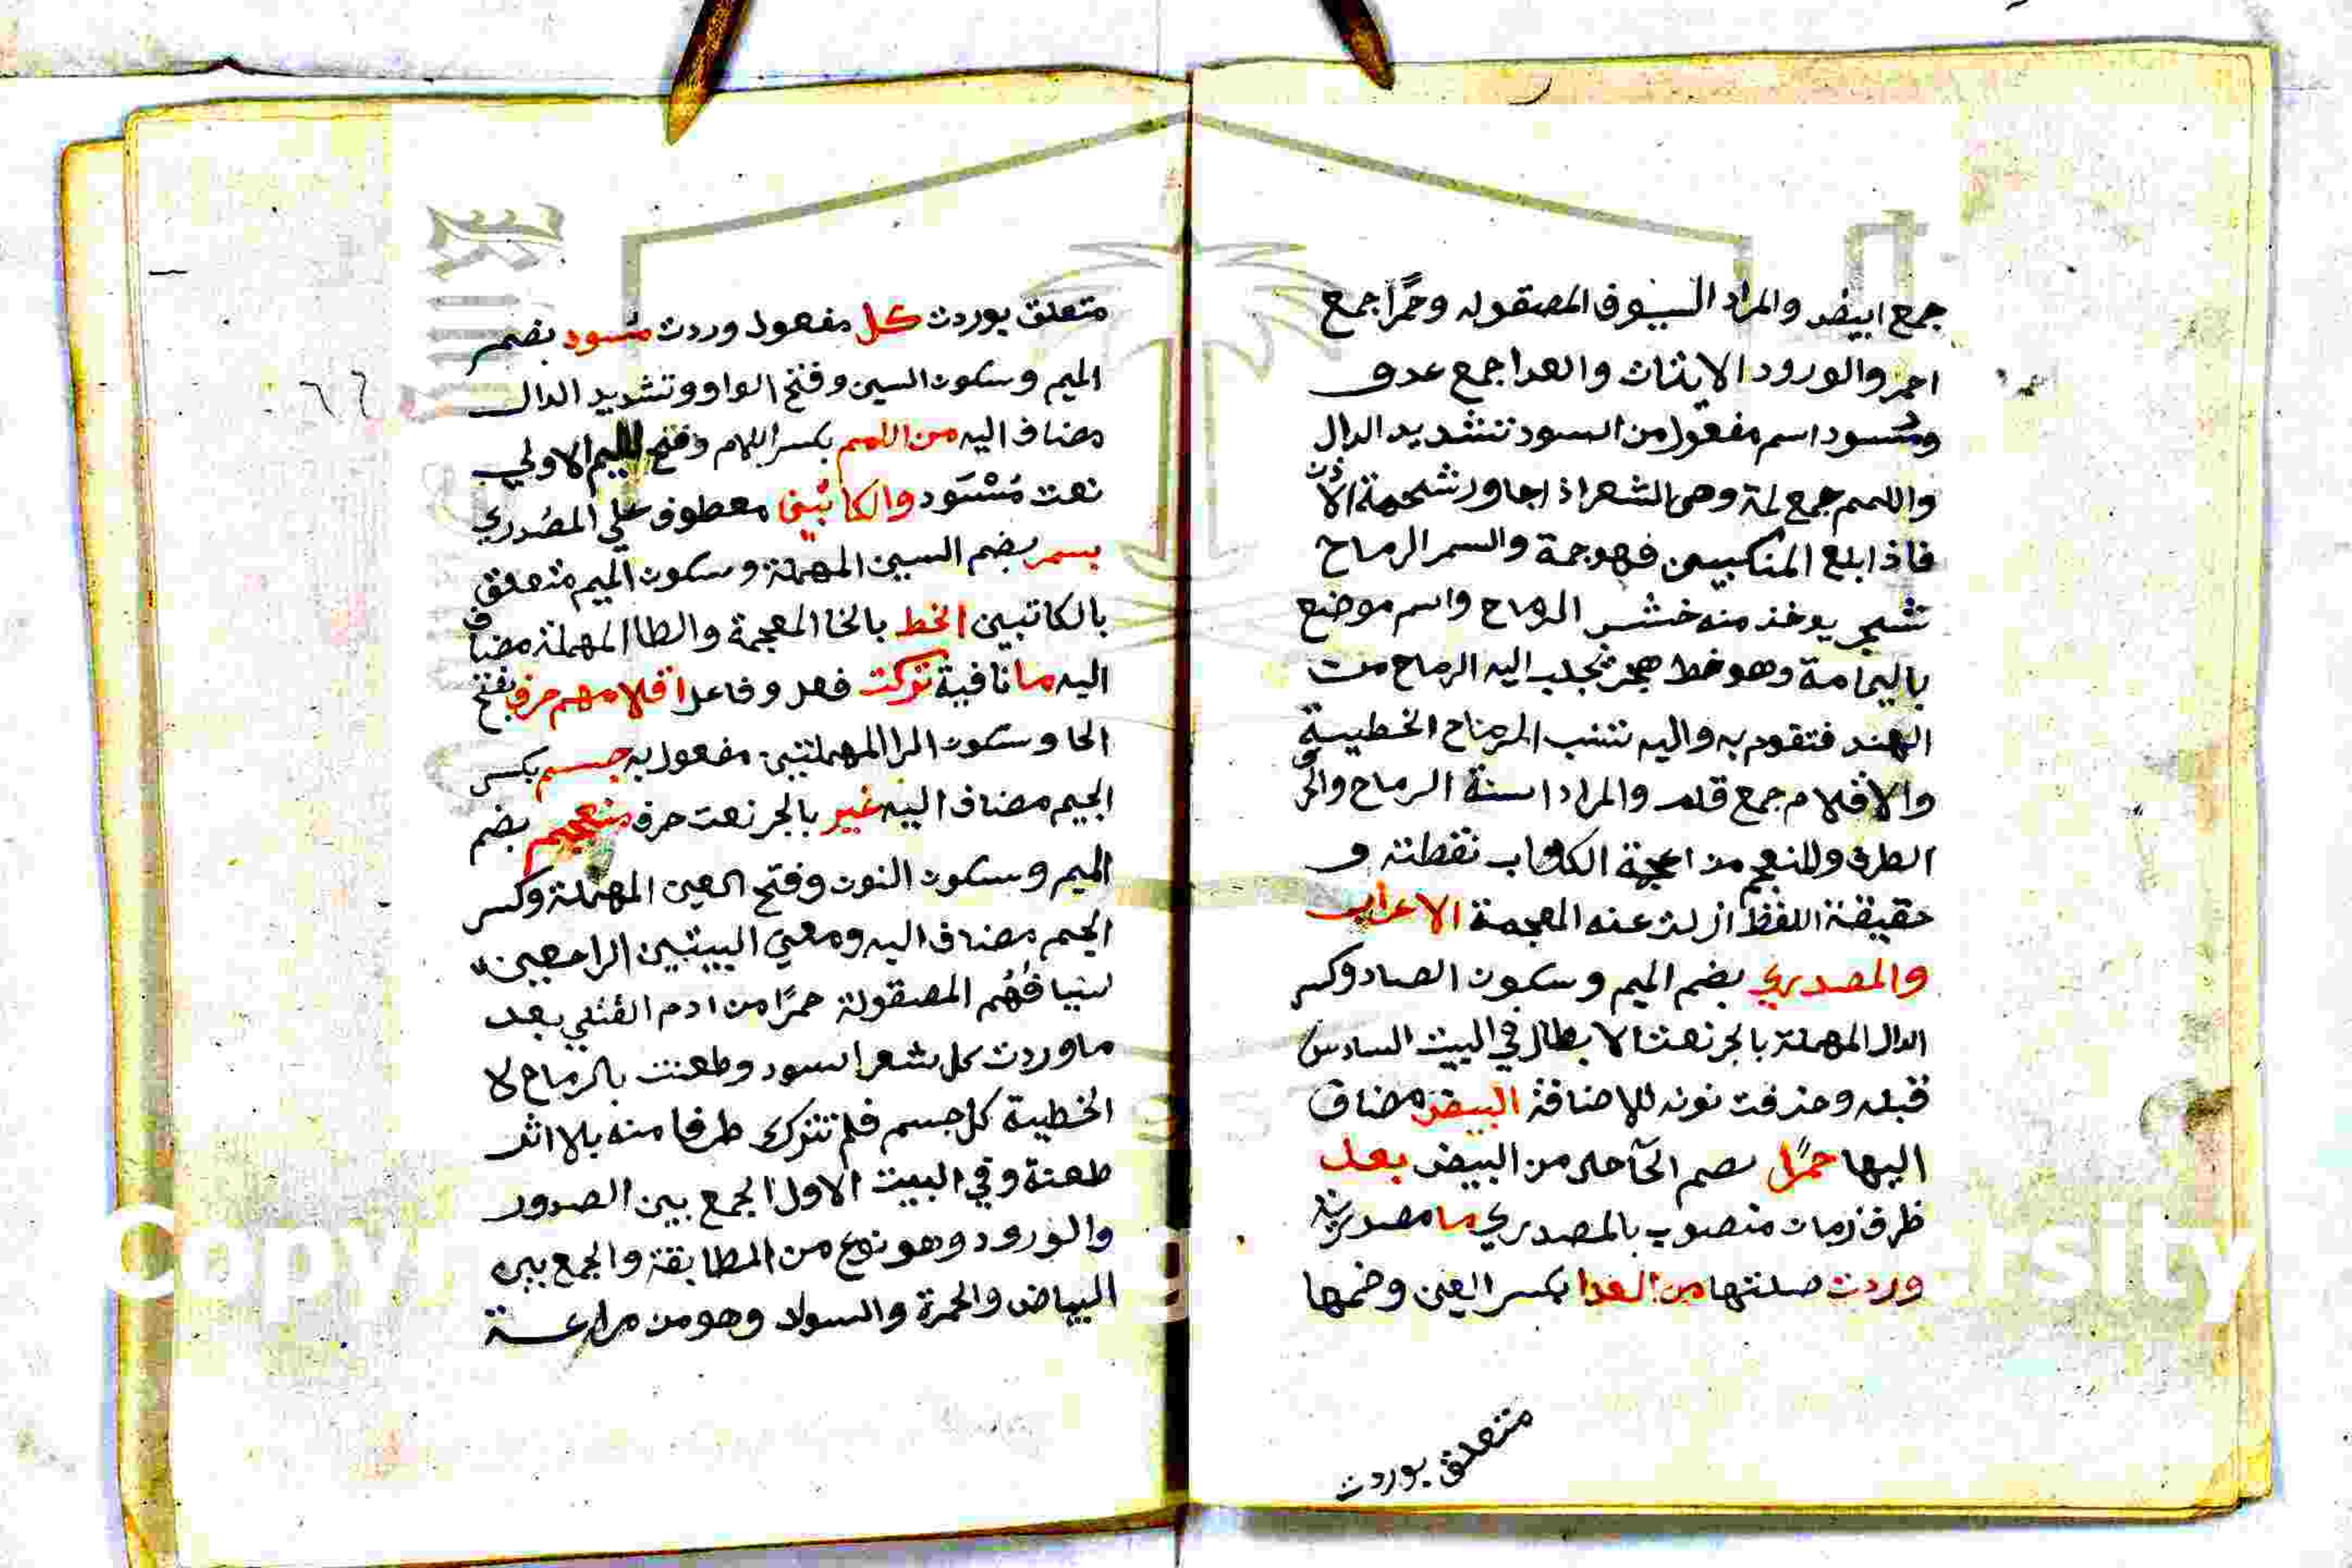 جمع ابيض والمراد السيوف المصقوله وحمرًا جمع
احمر والورود الاتيان والعدا جمع عدو
ومسود اسم مفعول من السود بتشديد الدال
واللمم جمع لمة وهى الشعر اذا جاور شحمة الاذن
فاذا بلغ المنكبين فهو جمة والسمر الرماح
شجر يوخذ منه خشب الرماح واسم موضع
باليمامة وهو خط هجر تجلب اليه الرماح من
الهند فتقوم به واليه تنسب الرماح الخطيسة
والاقلام جمع قلم والمراد اسنة الرماح والحرف
الطرف والمنعجم من اعجمة الكتاب نقطته و
حقيقة اللفظ ازلت عنه المعجمة الاعراب
والمصدري بضم الميم وسكون الصاد وكسر
الدال المهملة بالجر نعت الابطال في البيت السادس
قبله وحذفت نونه للاضافة البيض مضاف
اليها حمرًا بضم الحآ حال من البيض بعد
ظرف زمان منصوب بالمصدري ما مصدرية
وردت صلتها من العدا بكسر العين وضمها
متعلق بوردت
متعلق بوردت كل مفعول وردت مسود بضم
الميم وسكون السين وفتح الواو وتشديد الدال
مضاف اليه من اللمم بكسر اللام وفتح الميم الاولي
نعت مُسْوَد والكاتبين معطوف علي المصدري
بسمر بضم السين المهملة وسكون الميم متعلق
بالكاتبين الخط بالخا المعجمة والطا المهملة مضاف
اليه ما نافية تركت فعل وفاعل اقلامهم حرف بفتح
الحا وسكون الرا المهملتين مفعول به جسم بكسر
الجيم مضاف اليه غير بالجر نعت حرف منعجم بضم
الميم وسكون النون وفتح العين المهملة وكسر
الجيم مضاف اليه ومعني البيتين الراجعين
سيافهم المصقولة حمرًا من ادم القتلي بعد
ما وردت كل شعر اسود وطعنت بالرماح لا
الخطية كل جسم فلم تترك طرفا منه بلا اثر
طعنة وفي البيت الاول الجمع بين الصدور
والورود وهو نوع من المطابقة والجمع بين
البياض والحمرة والسواد وهو من مراعـة